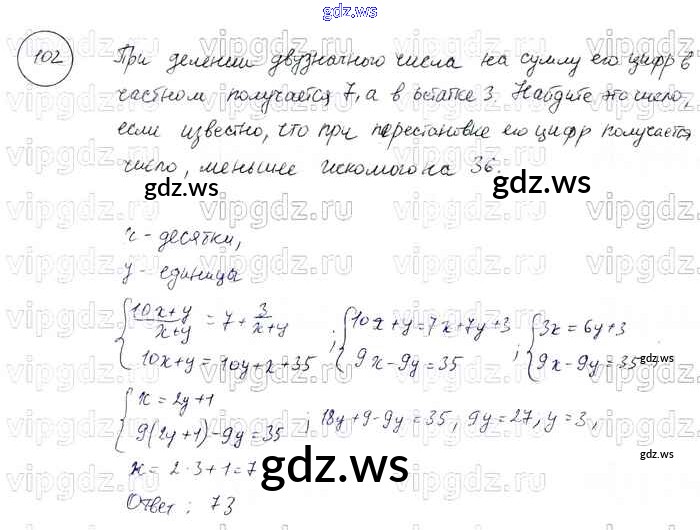 gdz.ws
102
При делении двузначного числа на сумму его цифр в
частном получается 7, а в остатке 3. Найдите это число,
если известно, что при перестановке его цифр получается
число, меньшее искомого на 36.
gdz.ws gdz.ws
x - десятки,
y - единицы
{ (10x+y)/(x+y) = 7 + 3/(x+y) ; { 10x+y=7x+7y+3 ; { 3x=6y+3
10x+y=10y+x+35 9x-9y=35 9x-9y=35 gdz.ws
{ x=2y+1
9(2y+1)-9y=35 , 18y+9-9y=35, 9y=27, y=3,
x = 2·3+1=7
gdz.ws
Ответ: 73
gdz.ws